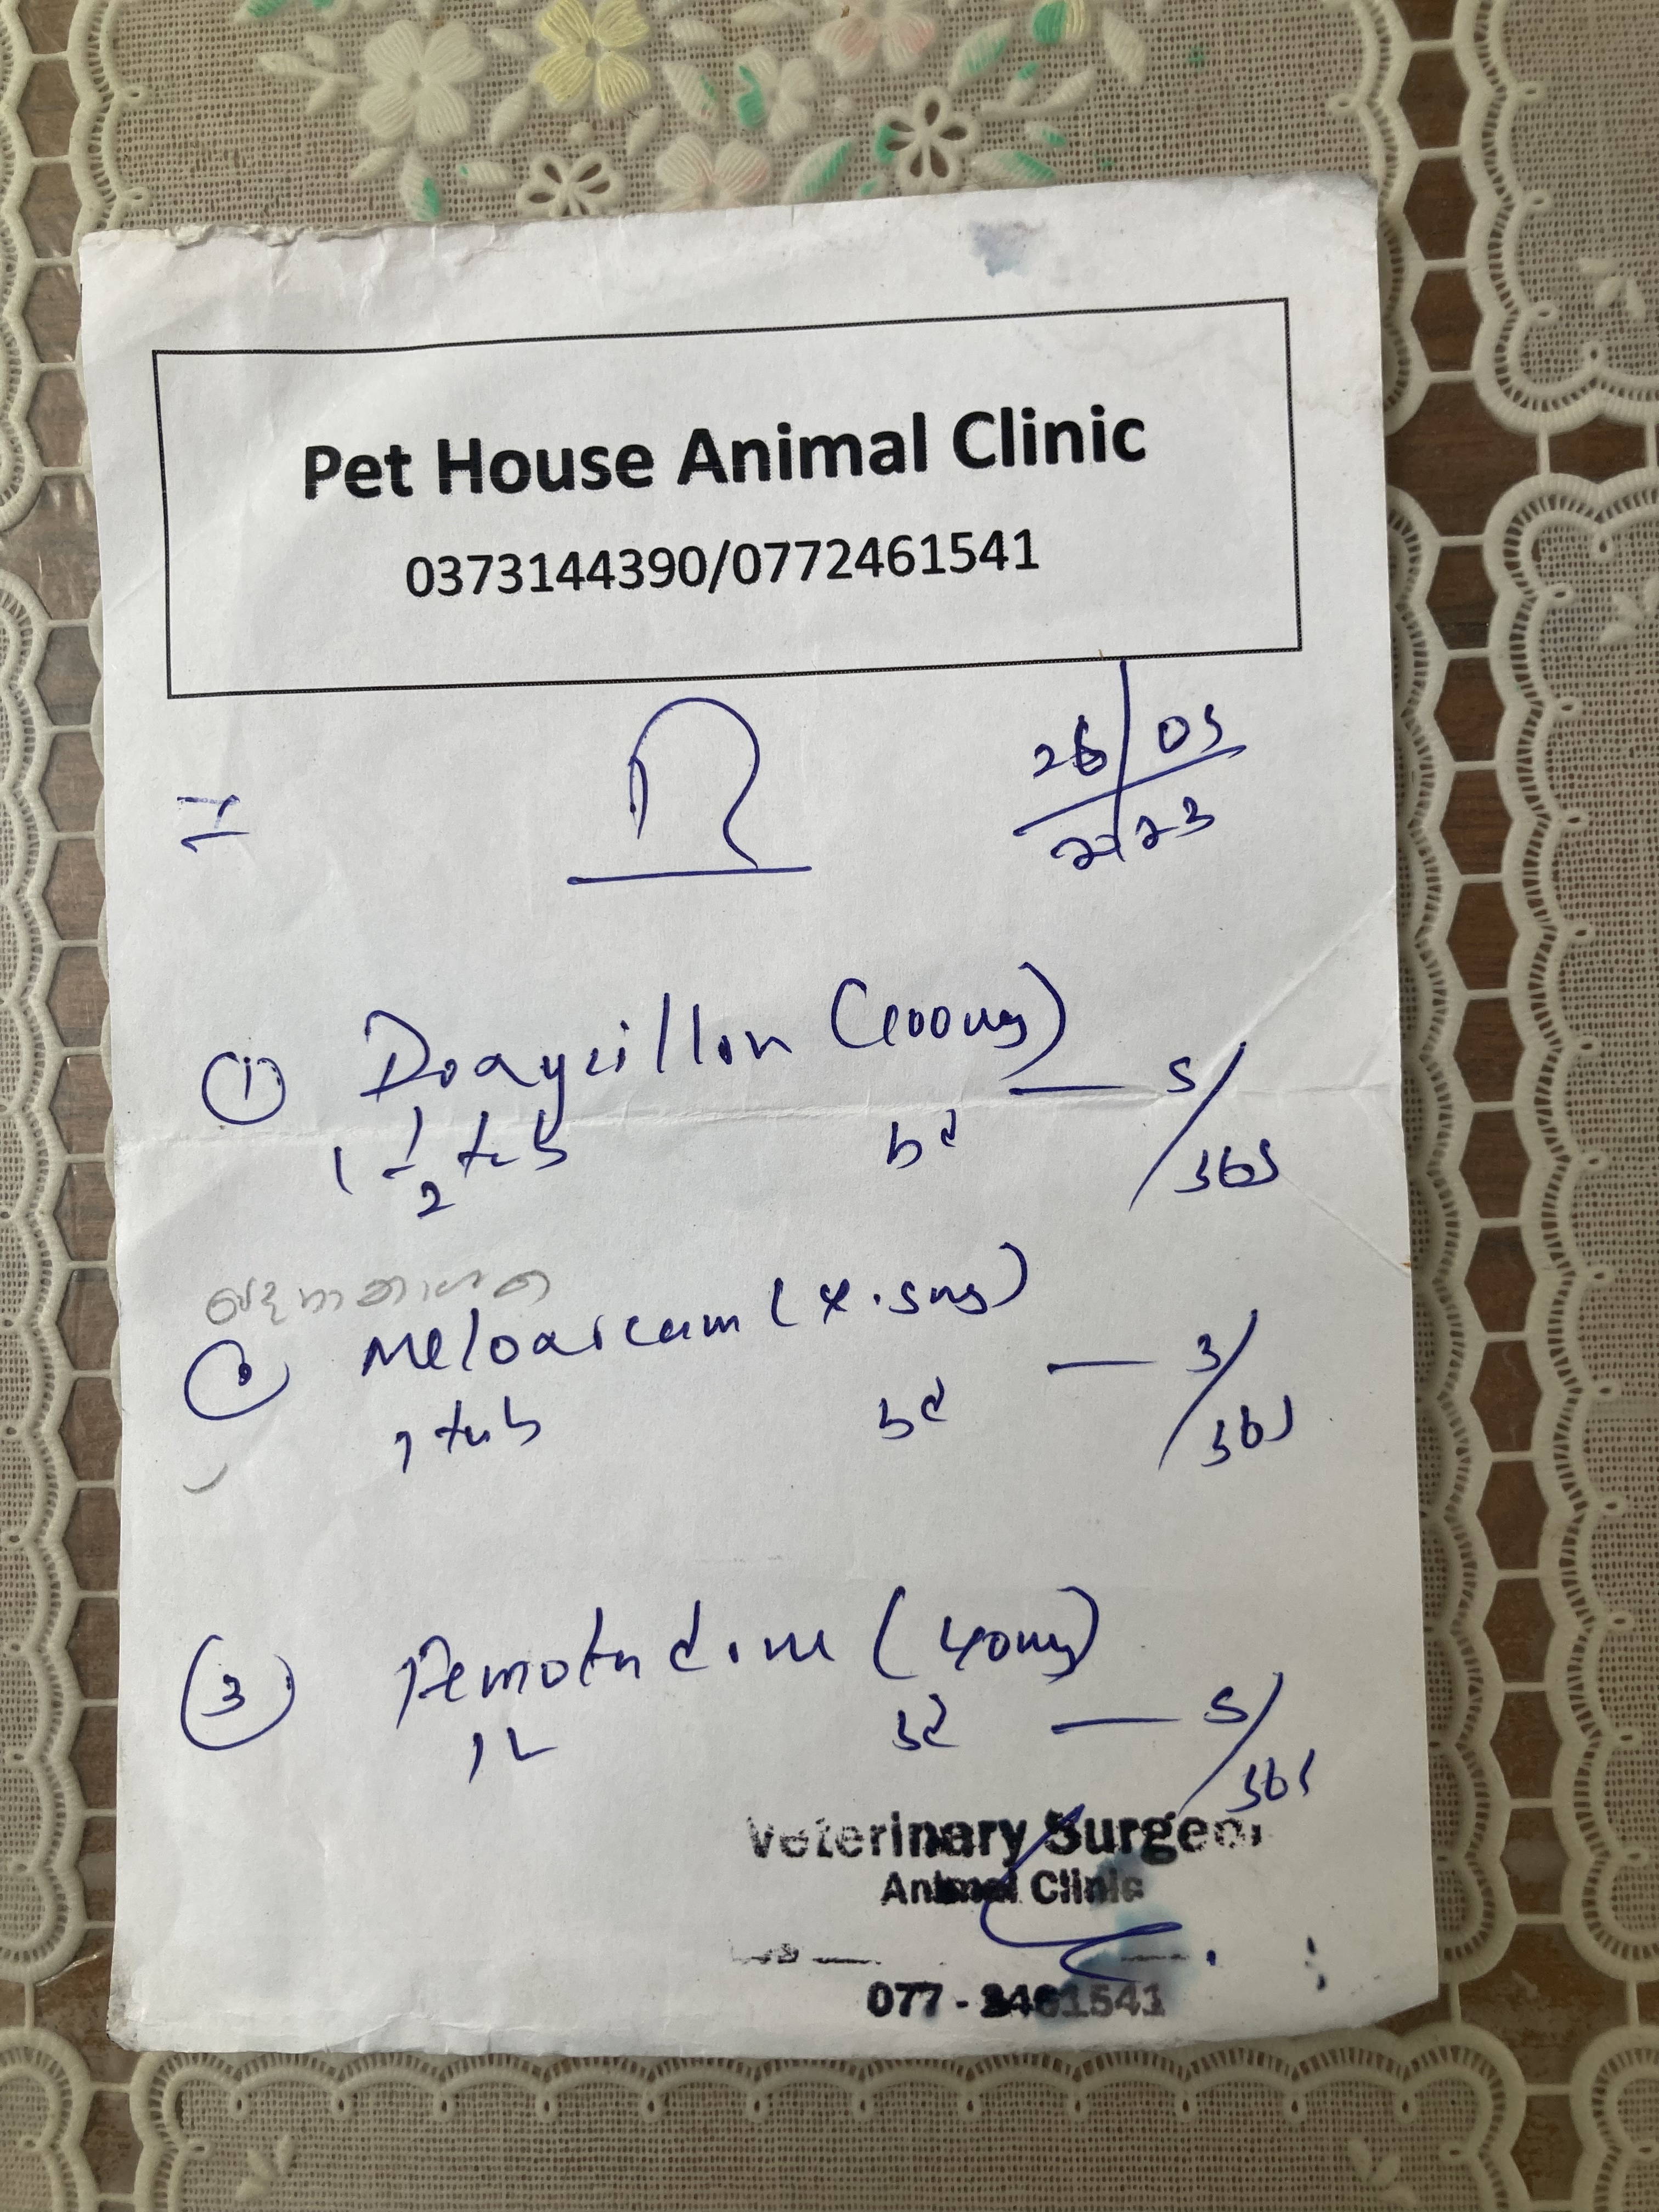 Pet House Animal Clinic
0373144390/0772461541
26/05
2023
① Doxycillin (100mg)
1 1/2 tab bd — 5/365
Meloxicam (7.5mg)
1 tab bd — 3/365
③ Femotidine (40mg)
bd — 5/365
Veterinary Surgeon
Animal Clinic
077 - 2461541